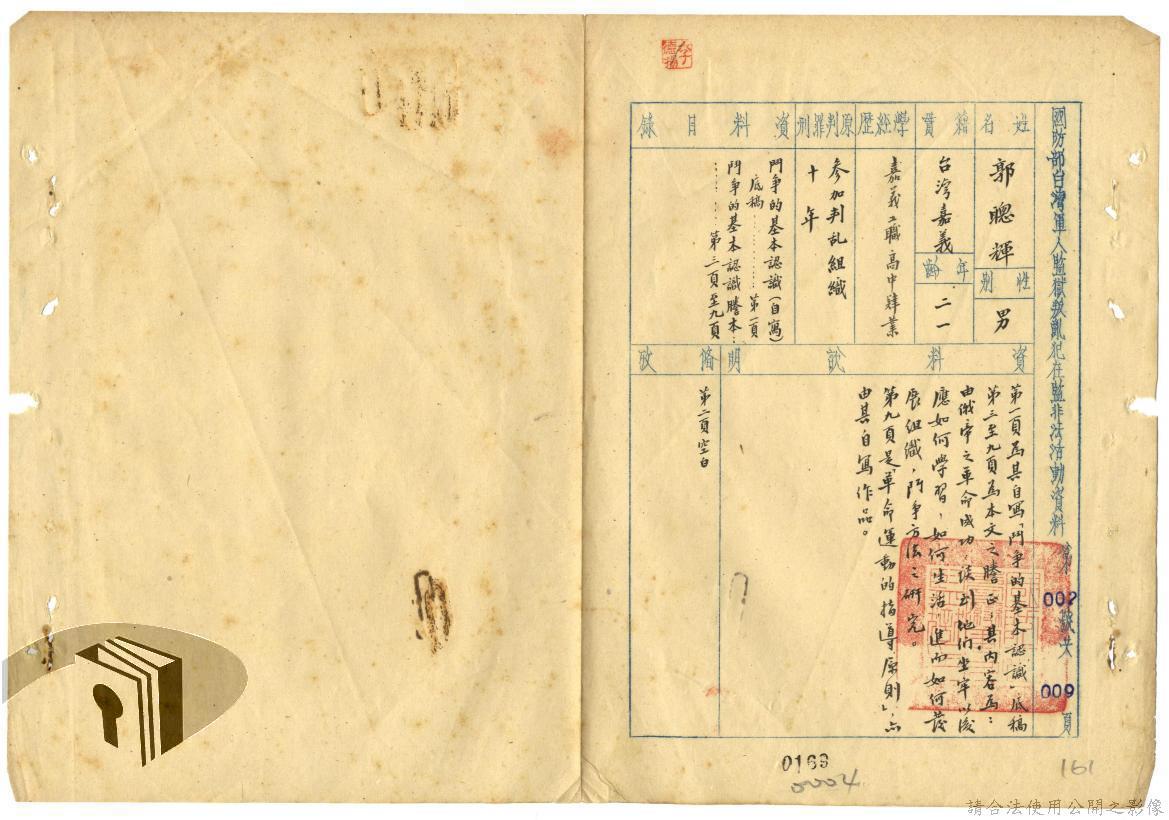 國防部台灣軍人監獄叛亂犯在監非法活動資料 第002號共009頁
姓名
郭聰輝
性別
男
籍貫
台灣嘉義
年齡
二一
學經歷
嘉義工職高中肄業
原判罪刑
參加判乱組織
十年
資料目錄
鬥爭的基本認識(自寫)
底稿………第一頁
鬥爭的基本認識謄本:
……第三頁至九頁
資料說明
第一頁為其自寫「鬥爭的基本認識」底稿
第三至九頁為本文之謄正;其內容為:
由俄帝之革命成功,談到他們坐牢以後
應如何學習,如何生活,進而如何發
展組織,鬥爭方法之研究。
第九頁是「革命運動的指導原則」,亦
由其自寫作品。
備攷
第二頁空白
0169
0004
161
請合法使用公開之影像